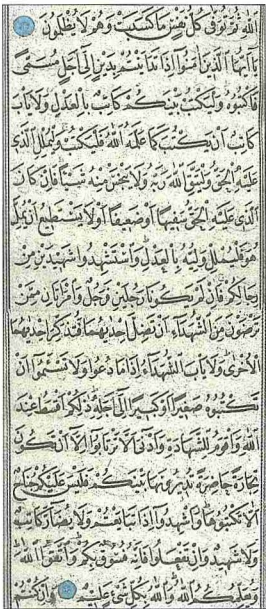 الله ثم توفى كل نفس ما كسبت وهم لا يظلمون
يا ايها الذين امنوا اذا تداينتم بدين الى اجل مسمى
فاكتبوه وليكتب بينكم كاتب بالعدل ولا ياب
كاتب ان يكتب كما علمه الله فليكتب وليملل الذي
عليه الحق وليتق الله ربه ولا يبخس منه شيئا فان كان
الذي عليه الحق سفيها او ضعيفا او لا يستطيع ان يمل
هو فليملل وليه بالعدل واستشهدوا شهيدين من
رجالكم فان لم يكونا رجلين فرجل وامراتان ممن
ترضون من الشهداء ان تضل احديهما فتذكر احديهما
الاخرى ولا ياب الشهداء اذا ما دعوا ولا تسئموا ان
تكتبوه صغيرا او كبيرا الى اجله ذلكم اقسط عند
الله واقوم للشهادة وادنى الا ترتابوا الا ان تكون
تجارة حاضرة تديرونها بينكم فليس عليكم جناح
الا تكتبوها واشهدوا اذا تبايعتم ولا يضار كاتب
ولا شهيد وان تفعلوا فانه فسوق بكم واتقوا الله
ويعلمكم الله والله بكل شئ عليم وان كنتم